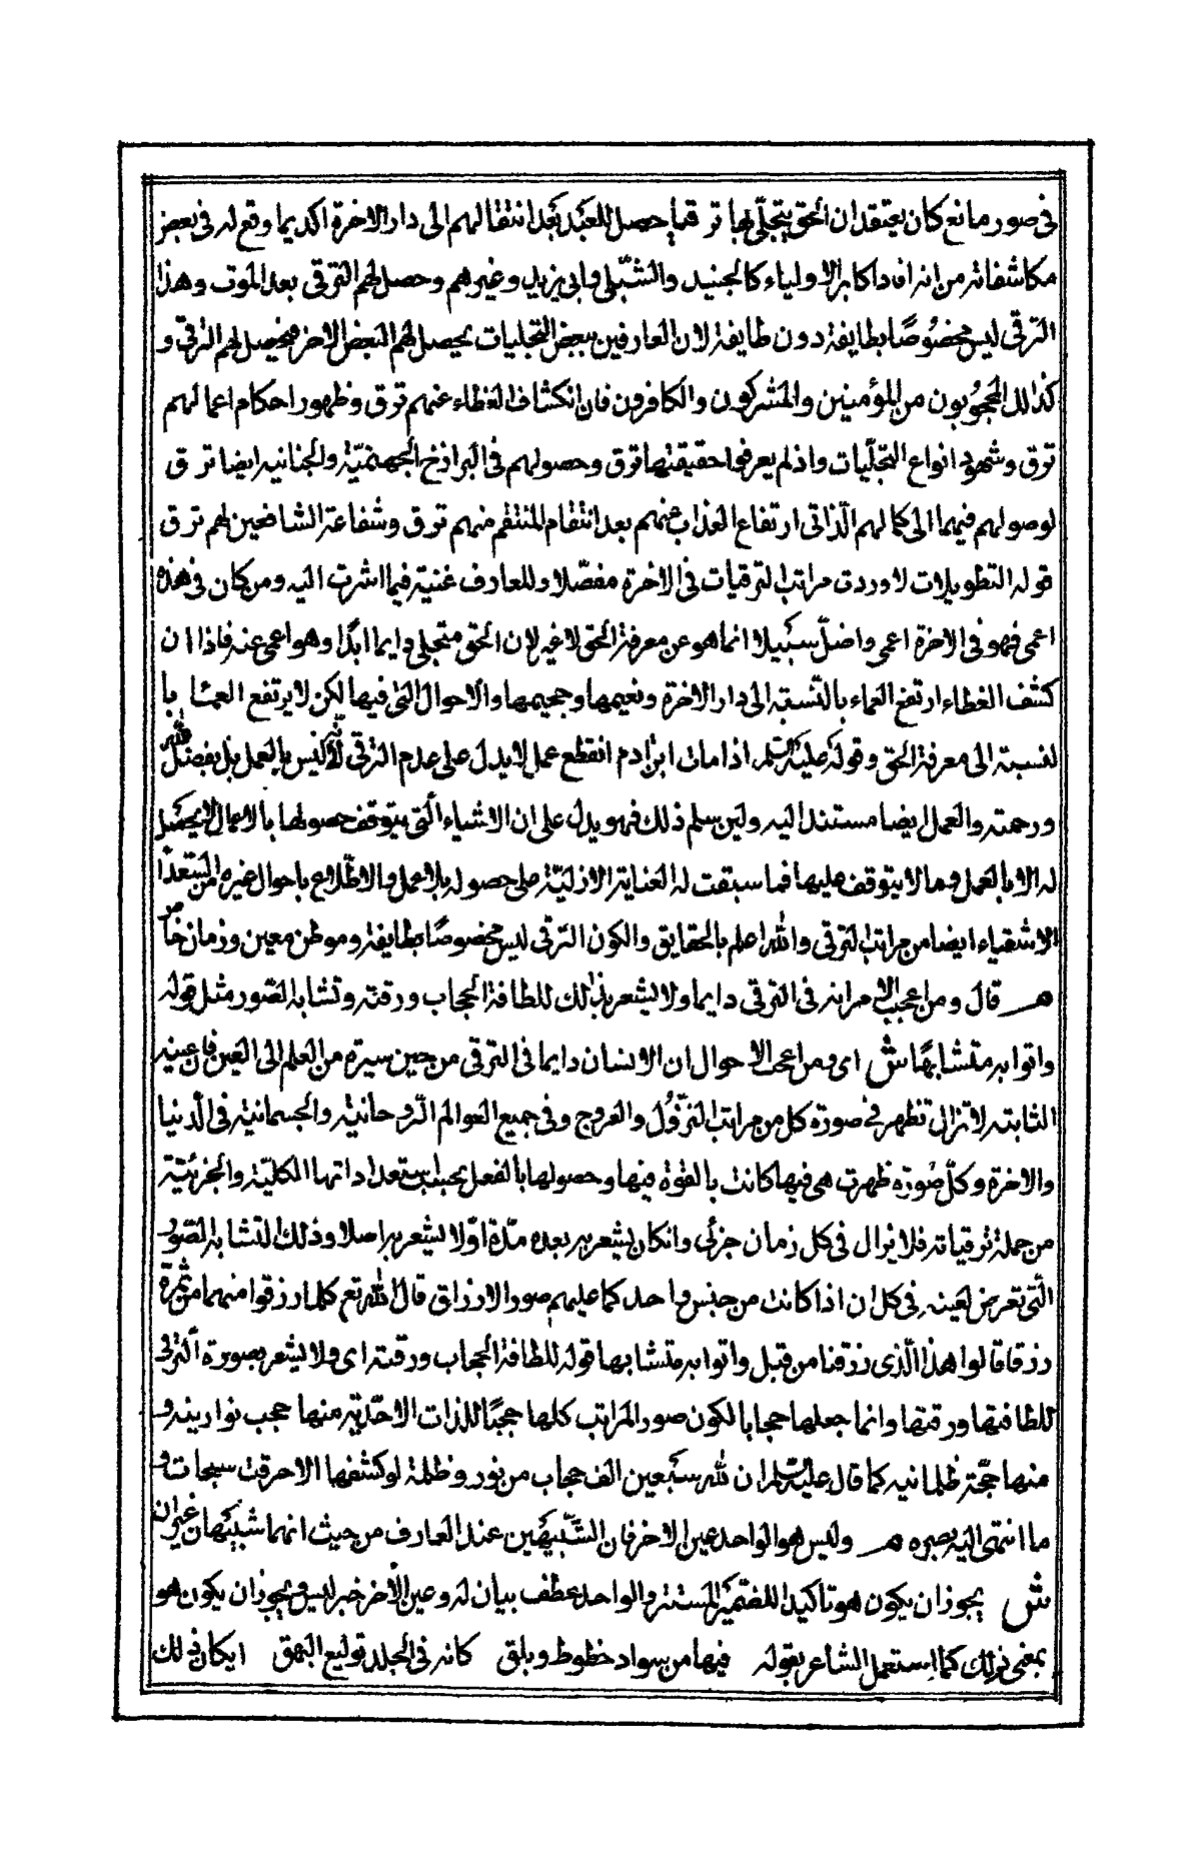 فی صور مانع کان یعتقد ان الحق یتجلی بها ترق فیما حصل للعبد بعد انتقالهم الی دار الاخرة اکدیما وقع له فی بعض
مکاشفاته من انه افاد اکابر الاولیاء کالجنید والشبلی وابی یزید وغیرهم وحصل لهم الترقی بعد الموت وهذا
الترقی لیس مخصوصا بطایفة دون طایفة لان العارفین ببعض التجلیات یحصل لهم البعض الاخر فیحصل لهم الترقی و
کذلک المحجوبون من المؤمنین والمشرکون والکافرون فان انکشاف الغطاء عنهم ترق وظهور احکام اعمالهم
ترق وشهود انواع التجلیات واذ لم یعرفوا حقیقتها ترق وحصولهم فی البرازخ الجهنمیة والجنانیة ایضا ترق
لوصولهم فیهما الی کمالهم الذاتی ارتفاع العذاب عنهم بعد انتقام المنتقم منهم ترق وشفاعة الشافعین لهم ترق
قوله التطویلات لاوردت مراتب الترقیات فی الاخرة مفصلا وللعارف غنیة فیما اشرت الیه ومن کان فی هذه
اعمی فهو فی الاخرة اعمی واضل سبیلا انما هو عن معرفة الحق لا غیر لان الحق متجلی دایما ابدا وهو اعمی عنه فاذا ان
کشف الغطاء ارتفع العماء بالنسبة الی دار الاخرة ونعیمها وجحیمها والاحوال التی فیها لکن لا یرتفع العما با
لنسبة الی معرفة الحق وقوله علیه السلم اذا مات ابن ادم انقطع عمله لا یدل علی عدم الترقی لانه لیس بالعمل بل بفضل الله
ورحمته والعمل ایضا مستند الیه ولین سلم ذلک فهو یدل علی ان الاشیاء التی یتوقف حصولها بالاعمال لا یحصل
له الا بالعمل وما لا یتوقف علیها فما سبقت له العنایة الازلیة علی حصوله بلا عمل والاطلاع باحوال غیره من السعداء
الاشقیاء ایضا من مراتب الترقی والله اعلم بالحقایق والکون الترقی لیس مخصوصا بطایفة وموطن معین وزمان خاص
م قال ومن اعجب الامر انه فی الترقی دایما ولا یشعر بذلک للطافة الحجاب ورقته وتشابه الصور مثل قوله
واتوا به متشابها ش ای ومن اعجب الاحوال ان الانسان دایما فی الترقی من حین سیره من العلم الی العین فان عینه
الثابته لا تزال تظهر فی صورة کل من مراتب النزول والعروج وفی جمیع العوالم الروحانیة والجسمانیة فی الدنیا
والاخرة وکل صورة ظهرت هی فیها کانت بالقوة فیها وحصولها بالفعل بحسب استعداداتها الکلیة والجزئیة
من جملة ترقیاته فلا یزال فی کل زمان جزئی وانکان یشعر به بعده مدة اولا یشعر به اصلا وذلک لتشابه الصور
التی تعرض لعینه فی کل ان اذا کانت من جنس واحد کما علیهم صور الارزاق قال الله تع کلما رزقوا منها من ثمرة
رزقا قالوا هذا الذی رزقنا من قبل واتوا به متشابها قوله للطافة الحجاب ورقته ای ولا یشعر بصورة الترقی
للطافتها ورقتها وانما جعلها حجابا لکون صور المراتب کلها حجبا للذات الاحدیة منها حجب نوارینه و
منها حجة ظلمانیه کما قال علیه السلم ان لله سبعین الف حجاب من نور وظلمة لو کشفها الاحرقت سبحات و
ما انتهی الیه بصره م ولیس هو الواحد عین الاخر فان الشبیهین عند العارف من حیث انهما شبیهان غیران
ش یجوز ان یکون هو تاکید اللضمیر المستتر والواحد عطف بیان له وعین الاخر خبر لیس ویجوز ان یکون هو
بمعنی ذلک کما استعمل الشاعر بقوله فیها من سواد خطوط وبلق کانه فی الجلد تولیع البهق ای کان ذلک